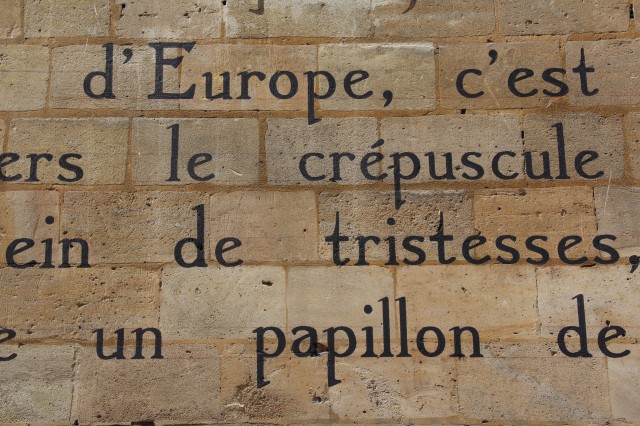 d'Europe, c'est
ers le crépuscule
ein de tristesses,
e un papillon de